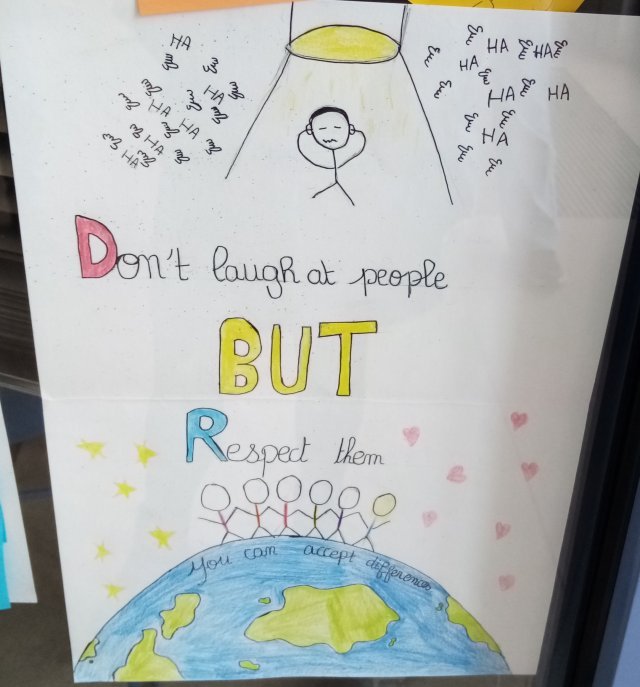 HA
HA
HA
HA
HA
HA
HA HA
HA
HA HA
HA
Don't laugh at people
BUT
Respect them
you can accept differences